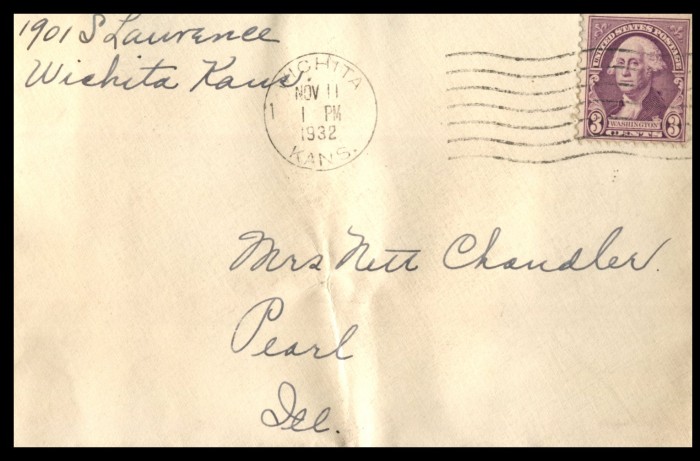 1901 S Lawrence
Wichita Kans.
WICHITA
NOV 11
1 1 PM
1932
KANS.
UNITED STATES POSTAGE
3 WASHINGTON 3
CENTS
Mrs Nett Chandler.
Pearl
Ill.